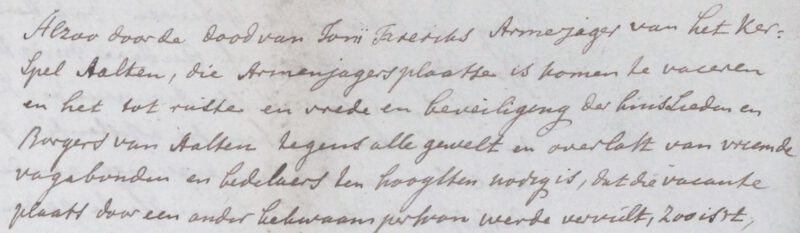 Alzoo door de dood van Tonij Frerichs Armejager van het Ker=
spel Aalten, die Armenjagersplaatse is komen te vaceren
en het tot ruste en vrede en beveiliging der huislieden en
Borgers van Aalten tegens alle gewelt en overlast van vreemde
vagabonden en bedelaers ten hoogsten nodig is, dat die vacante
plaats door een ander bekwaam persoon werde vervult, Zoo ist,